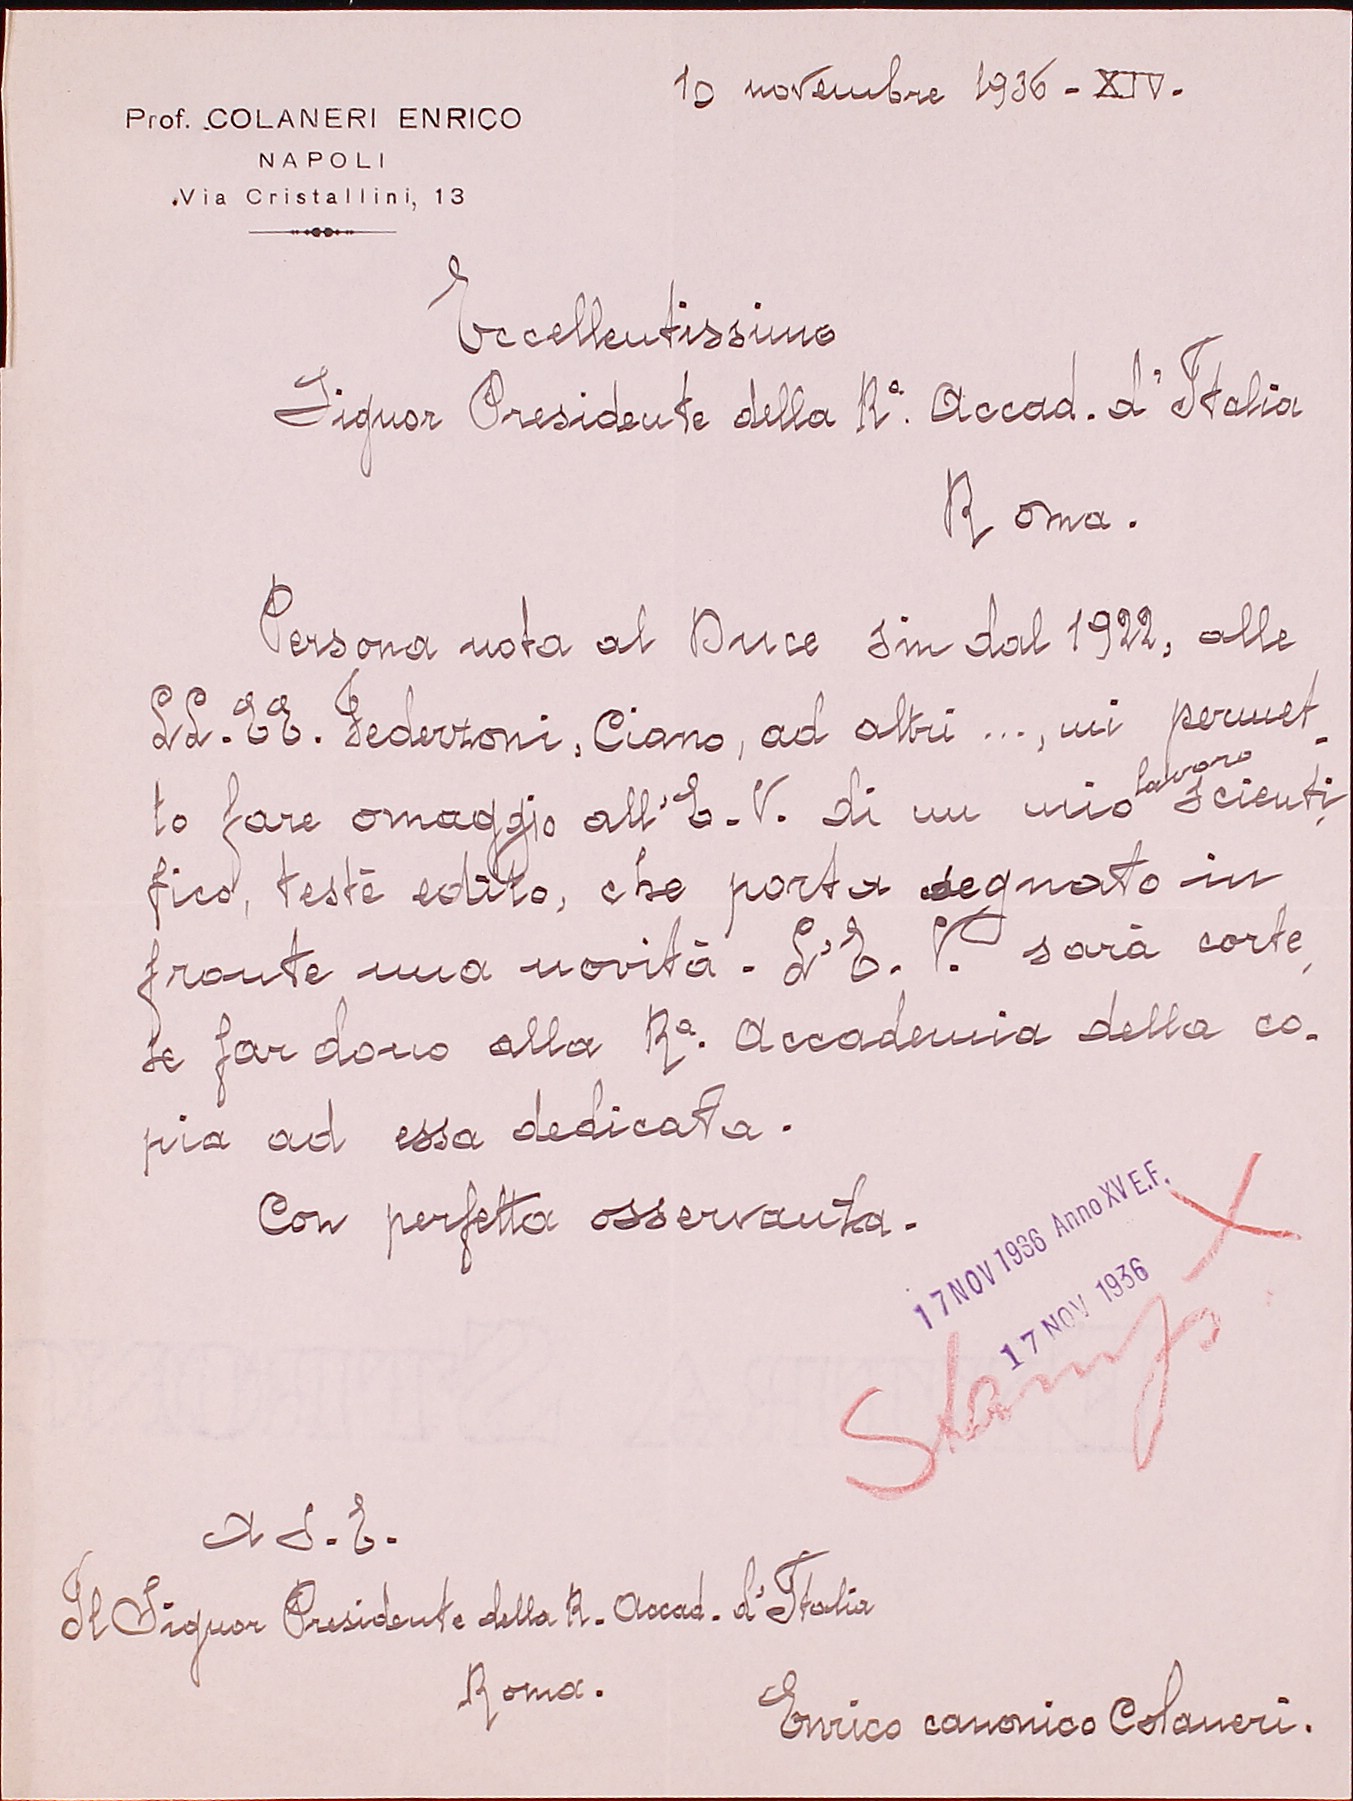 10 novembre 1936 - XIV.
Prof. COLANERI ENRICO
NAPOLI
Via Cristallini, 13
Eccellentissimo
Signor Presidente della Rª. Accad. d'Italia
Roma.
Persona nota al Duce sin dal 1922, alle
LL. EE. Federzoni, Ciano, ad altri ..., mi permet-
to fare omaggio all'E. V. di un mio lavoro scienti-
fico, testè edito, che porta segnato in
fronte una novità. L'E. V. sarà corte-
se far dono alla Rª. Accademia della co-
pia ad essa dedicata.
Con perfetta osservanza.
17 NOV 1936 Anno XV E.F.
17 NOV 1936
A S. E.
Il Signor Presidente della R. Accad. d'Italia
Roma.
Enrico canonico Colaneri.